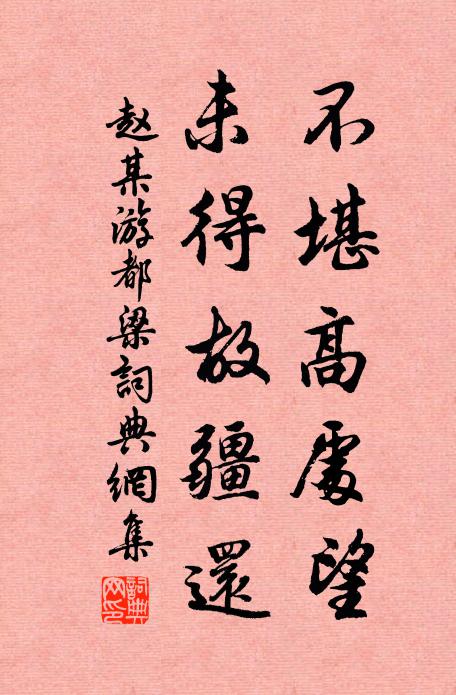 不堪高處望
未得故疆還
赵某游都梁詞典網集
詞典
网印